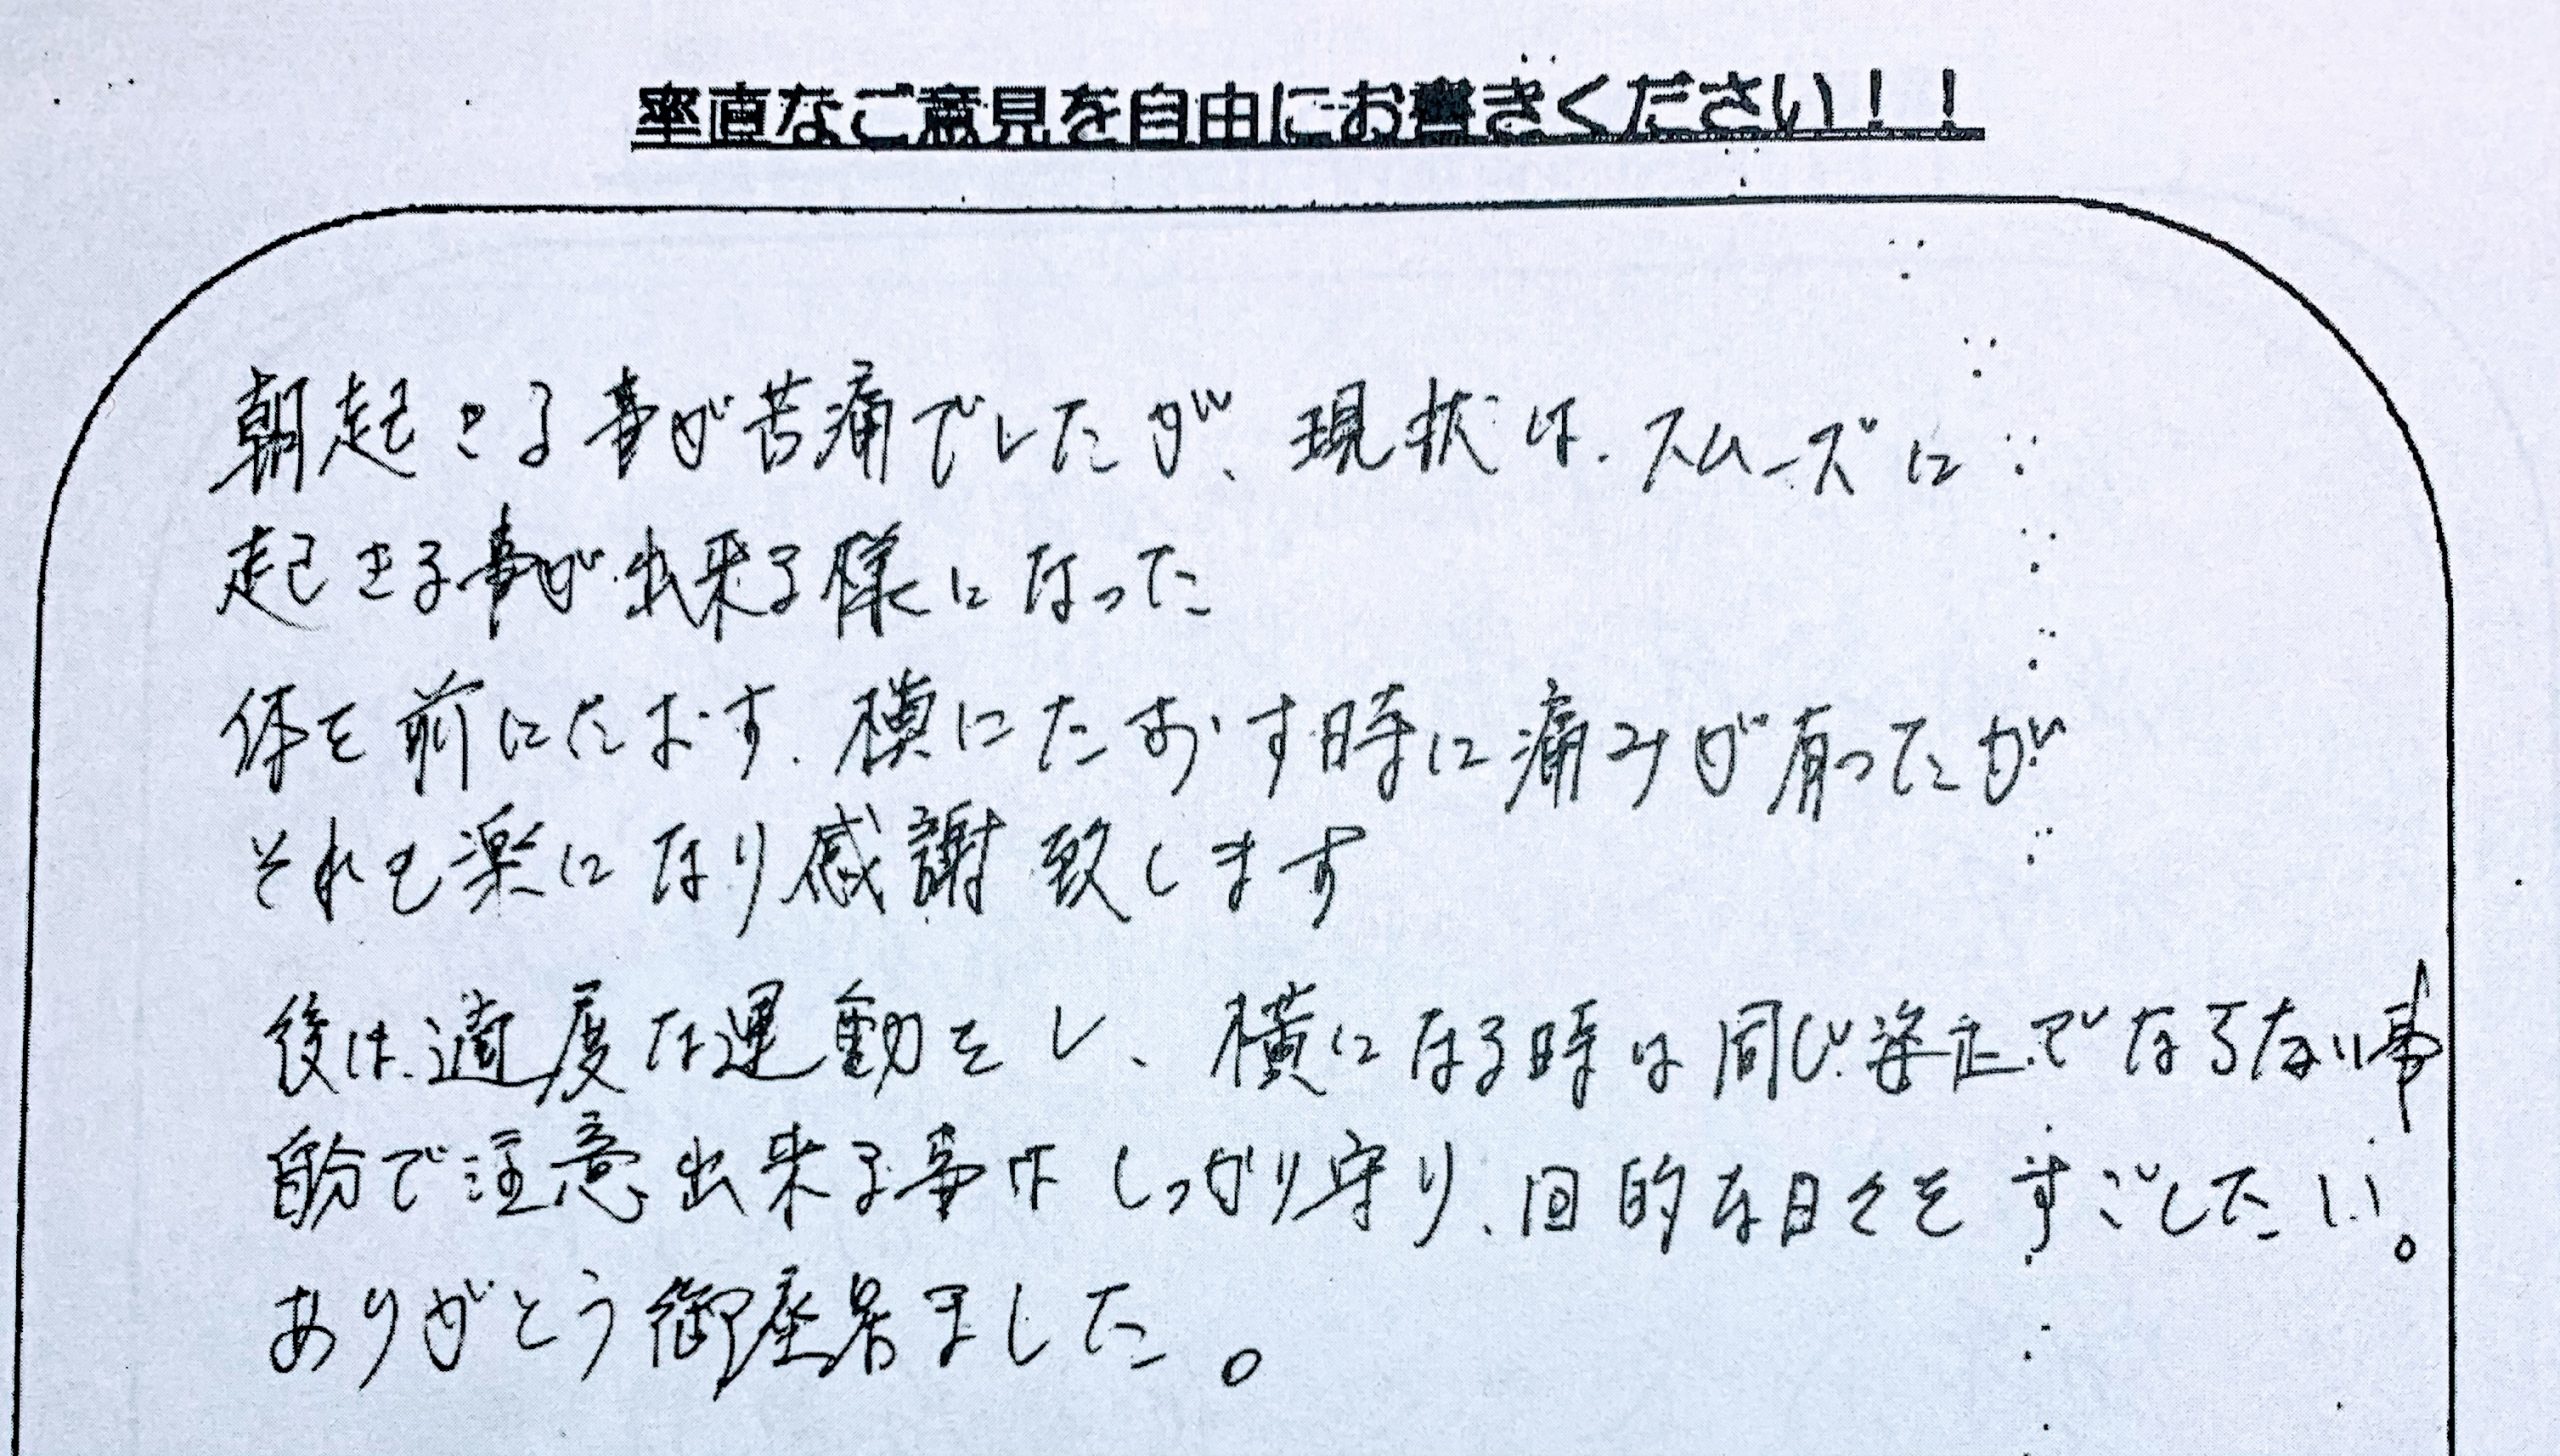 率直なご意見を自由にお書きください！！
朝起きる事が苦痛でしたが、現状は、スムーズに
起きる事が出来る様になった
体を前にたおす、横にたおす時に痛みが有ったが
それも楽になり感謝致します
後は、適度な運動をし、横になる時は同じ姿正でならない事
自分で注意出来る事はしっかり守り、目的な日々をすごしたい。
ありがとう御座居ました。